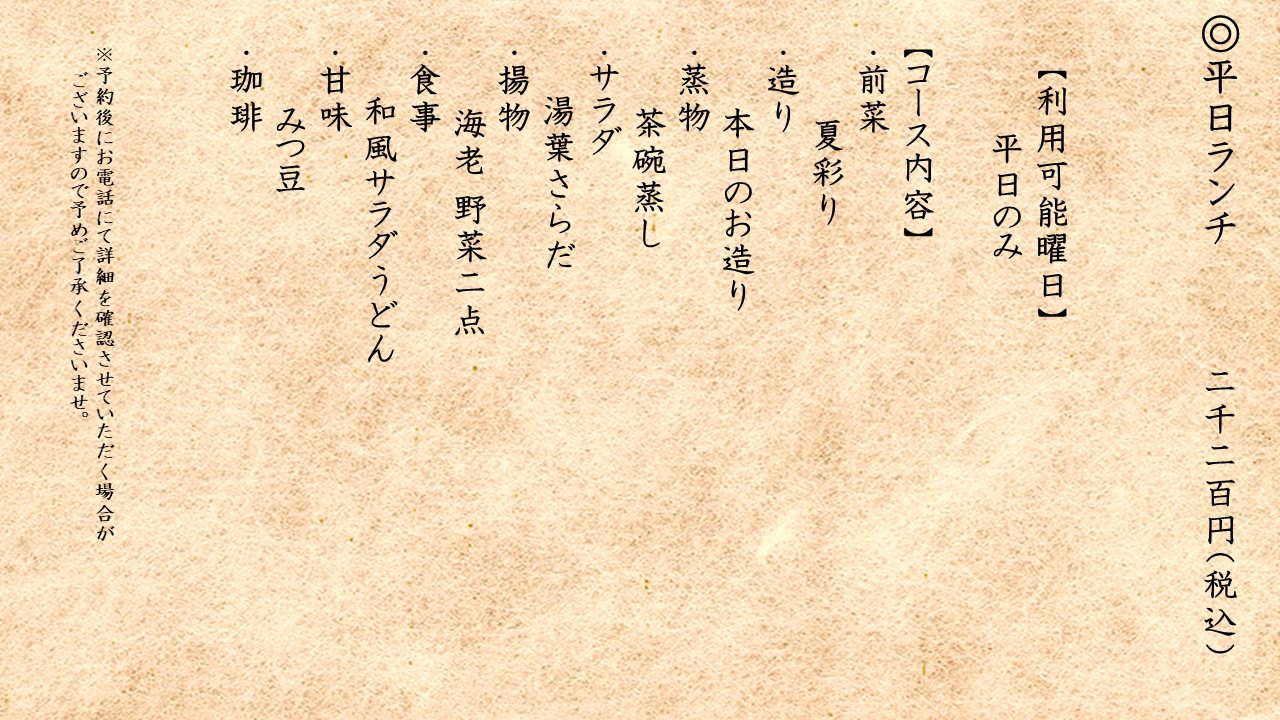 ◎平日ランチ　二千二百円（税込）
【利用可能曜日】
平日のみ
【コース内容】
・前菜
夏彩り
・造り
本日のお造り
・蒸物
茶碗蒸し
・サラダ
湯葉さらだ
・揚物
海老 野菜二点
・食事
和風サラダうどん
・甘味
みつ豆
・珈琲
※予約後にお電話にて詳細を確認させていただく場合が
ございますので予めご了承くださいませ。